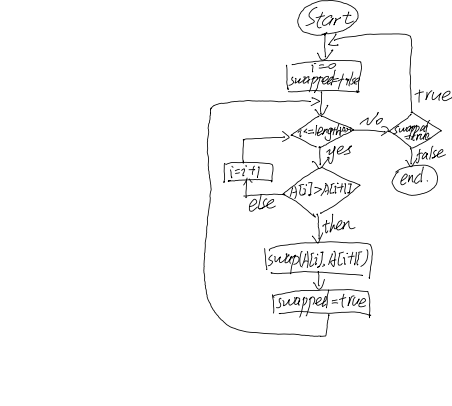 Start
i=0
swapped=false
i<=length
No
swapped
=true
true
false
end.
yes
i=i+1
A[i]>A[i+1]
else
then
swap(A[i], A[i+1])
swapped=true